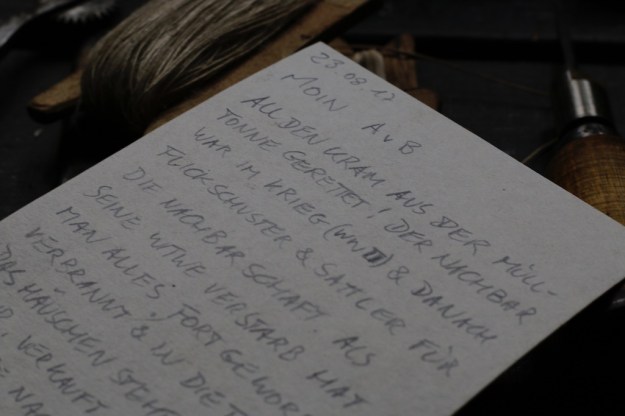 23 08 17
MOIN AvB
ALL DEN KRAM AUS DER MÜLL-
TONNE GERETTET! DER NACHBAR
WAR IM KRIEG (WW II) & DANACH
FLICKSCHUSTER & SATTLER FÜR
DIE NACHBARSCHAFT. ALS
SEINE WITWE VERSTARB HAT
MAN ALLES FORTGEWOR
VERBRANNT & IN DIE T
DAS HÄUSCHEN STEH
VERKAUFT
NA